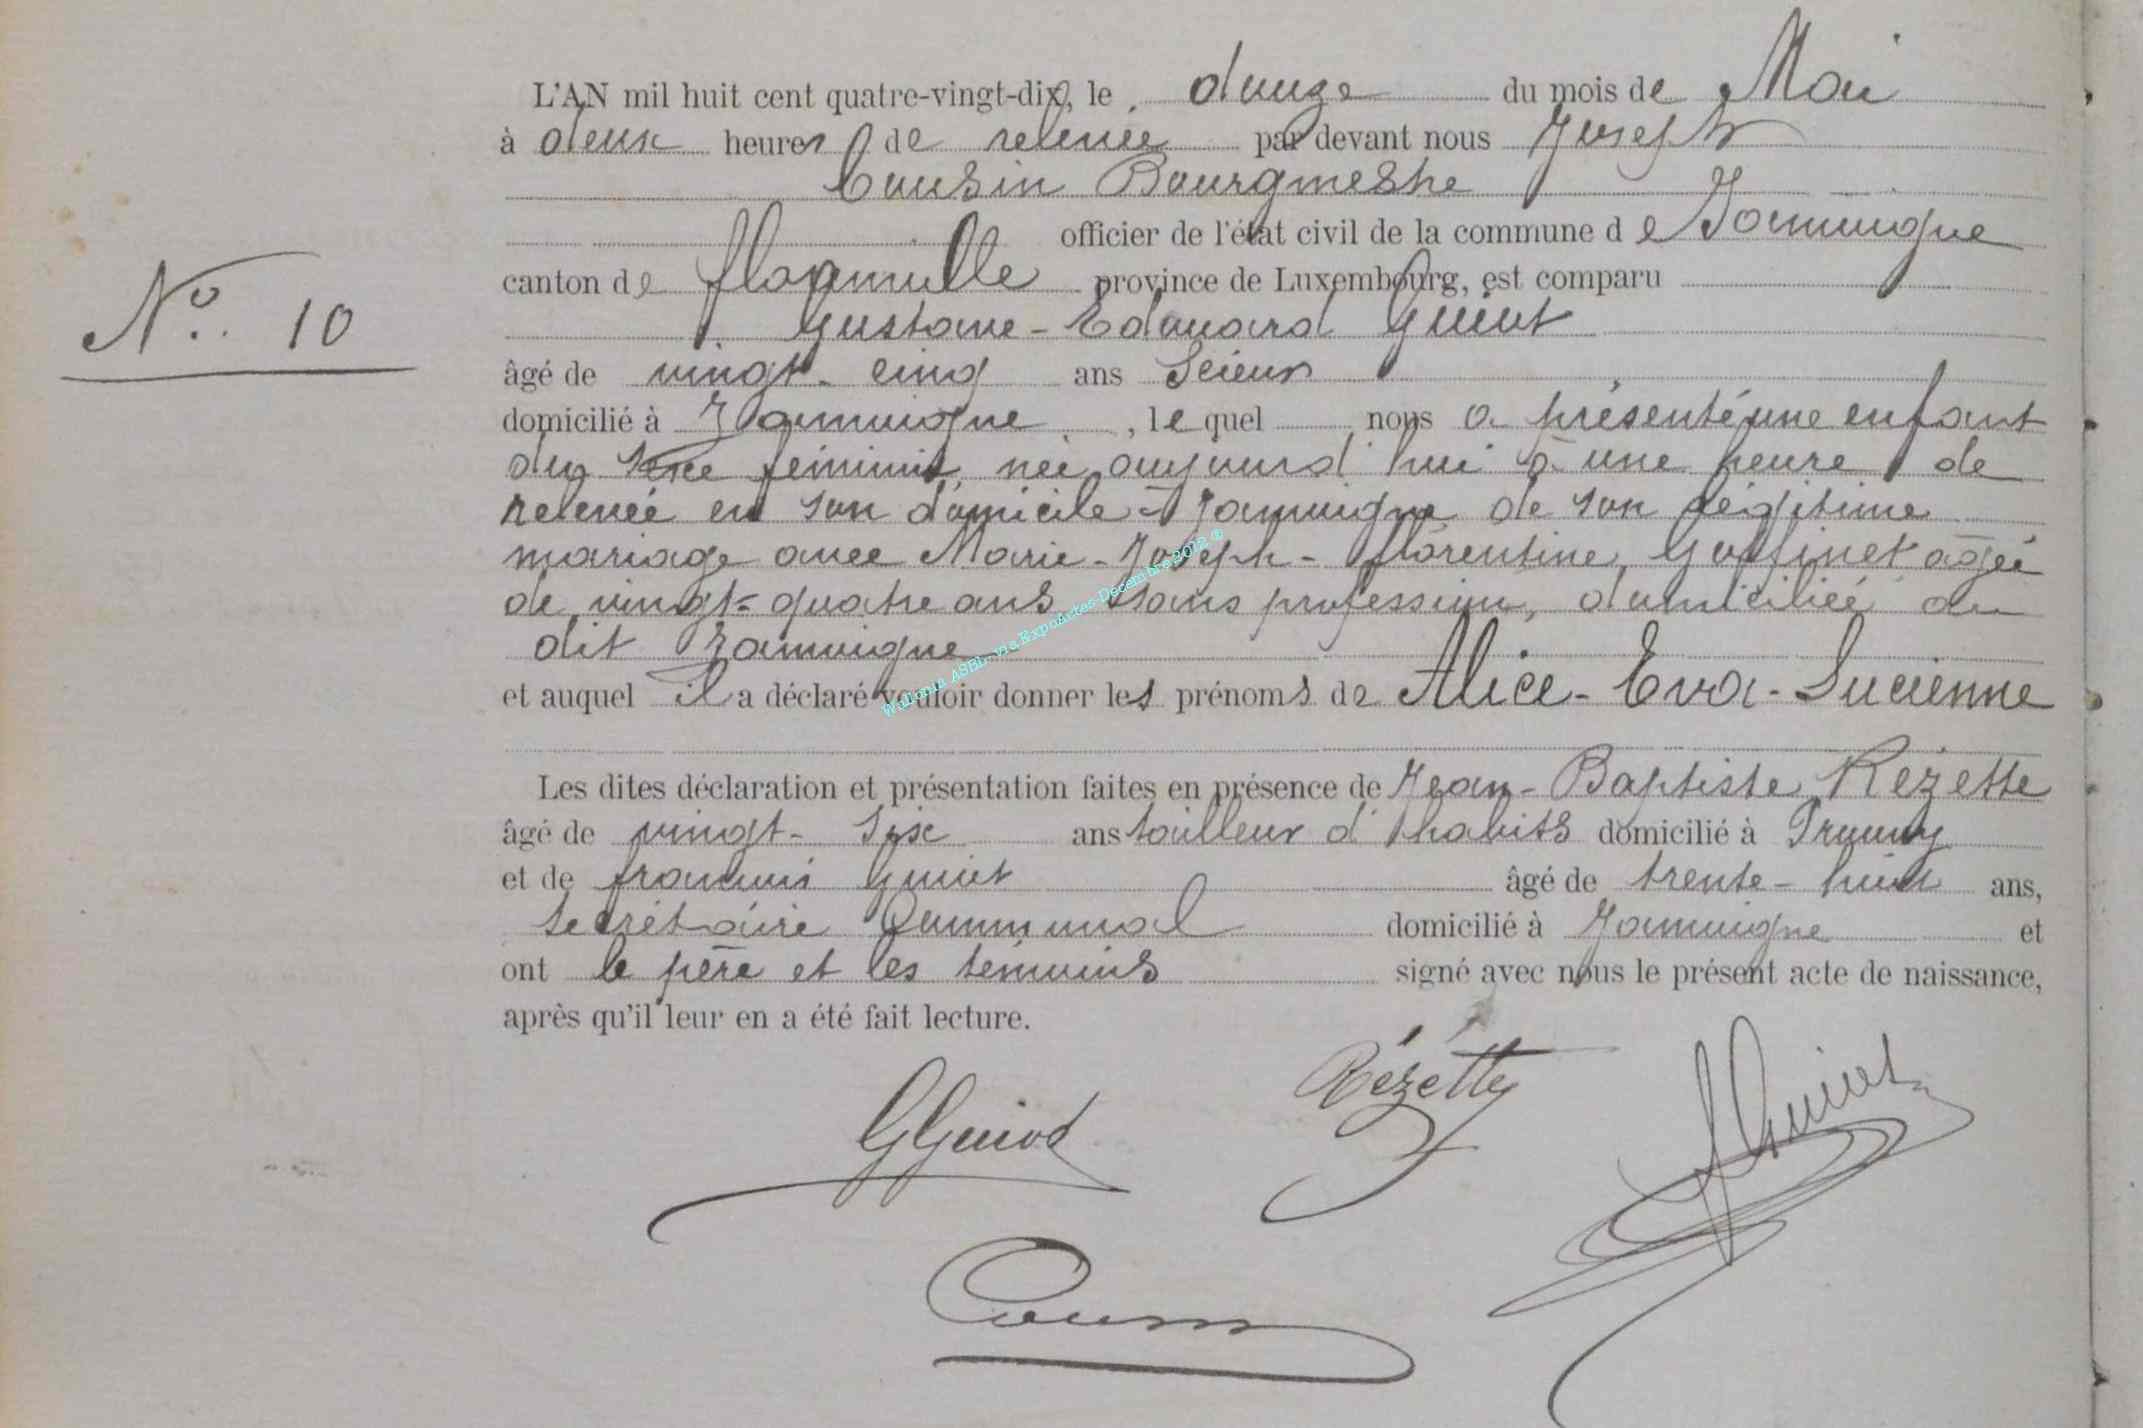 L'AN mil huit cent quatre-vingt-dix, le douze du mois de Mai
à deux heures de relevée par devant nous Joseph
Cousin Bourgmestre
officier de l'état civil de la commune de Jamoigne
N°. 10
canton de florenville province de Luxembourg, est comparu
Gustave-Edouard Guiot
âgé de vingt-cinq ans Scieur
domicilié à Jamoigne, lequel nous a présenté une enfant
du sexe féminin, née aujourd'hui à une heure de
relevée en son domicile à Jamoigne de son légitime
mariage avec Marie-Joseph-florentine Goffinet âgée
de vingt-quatre ans sans profession, domiciliée au
dit Jamoigne
et auquel il a déclaré vouloir donner les prénoms de Alice-Eva-Lucienne
Les dites déclaration et présentation faites en présence de Jean-Baptiste Rezette
âgé de vingt-six ans tailleur d'habits domicilié à Prouvy
et de françois Guiot âgé de trente-huit ans,
secrétaire Communal domicilié à Jamoigne et
ont le père et les témoins signé avec nous le présent acte de naissance,
après qu'il leur en a été fait lecture.
GGuiot Rézette fGuiot
Cousin
Wallonia ASBL via ExpoActes-Décembre 2012 ®